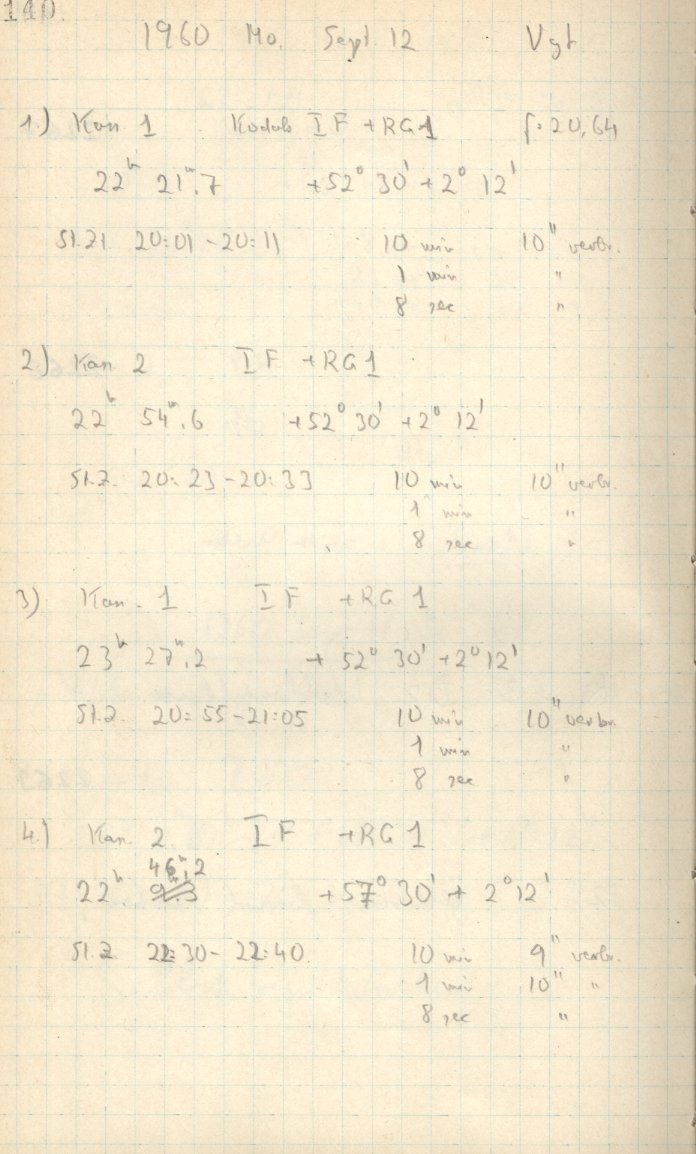 140
1960 Mo. Sept. 12 Vgt
1.) Kan 1 Kodak I F + RG1 f: 20,64
22h 21m.7 +52° 30' + 2° 12'
St.Zt. 20:01 - 20:11 10 min 10" verbr.
1 min "
8 sec "
2) Kan 2 I F + RG1
22h 54m.6 +52° 30' + 2° 12'
St.Z. 20:23 - 20:33 10 min 10" verbr.
1 min "
8 sec "
3) Kan. 1 I F + RG1
23h 27m.2 + 52° 30' + 2° 12'
St.Z. 20:55 - 21:05 10 min 10" verbr.
1 min "
8 sec "
4.) Kan. 2 I F + RG1
46m.2
22h +57° 30' + 2° 12'
St.Z. 22:30 - 22:40 10 min 9" verbr.
1 min 10" "
8 sec "